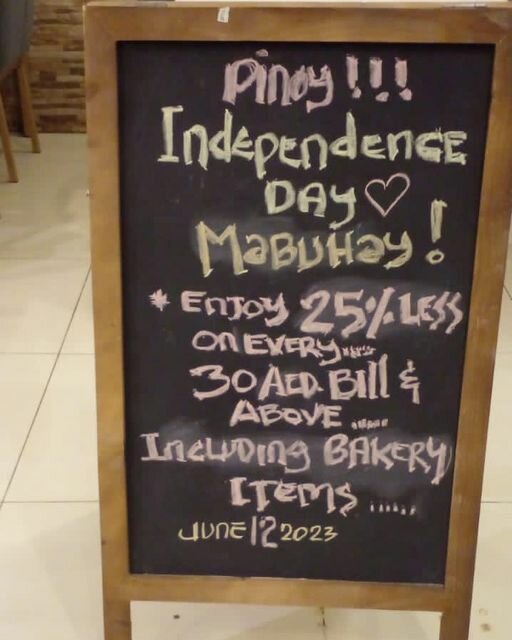 Pinoy !!!
Independence
Day ♡
Mabuhay !
* Enjoy 25% Less
on Every.....
30 AED. Bill &
Above ......
Including Bakery
Items ......
June 12 2023